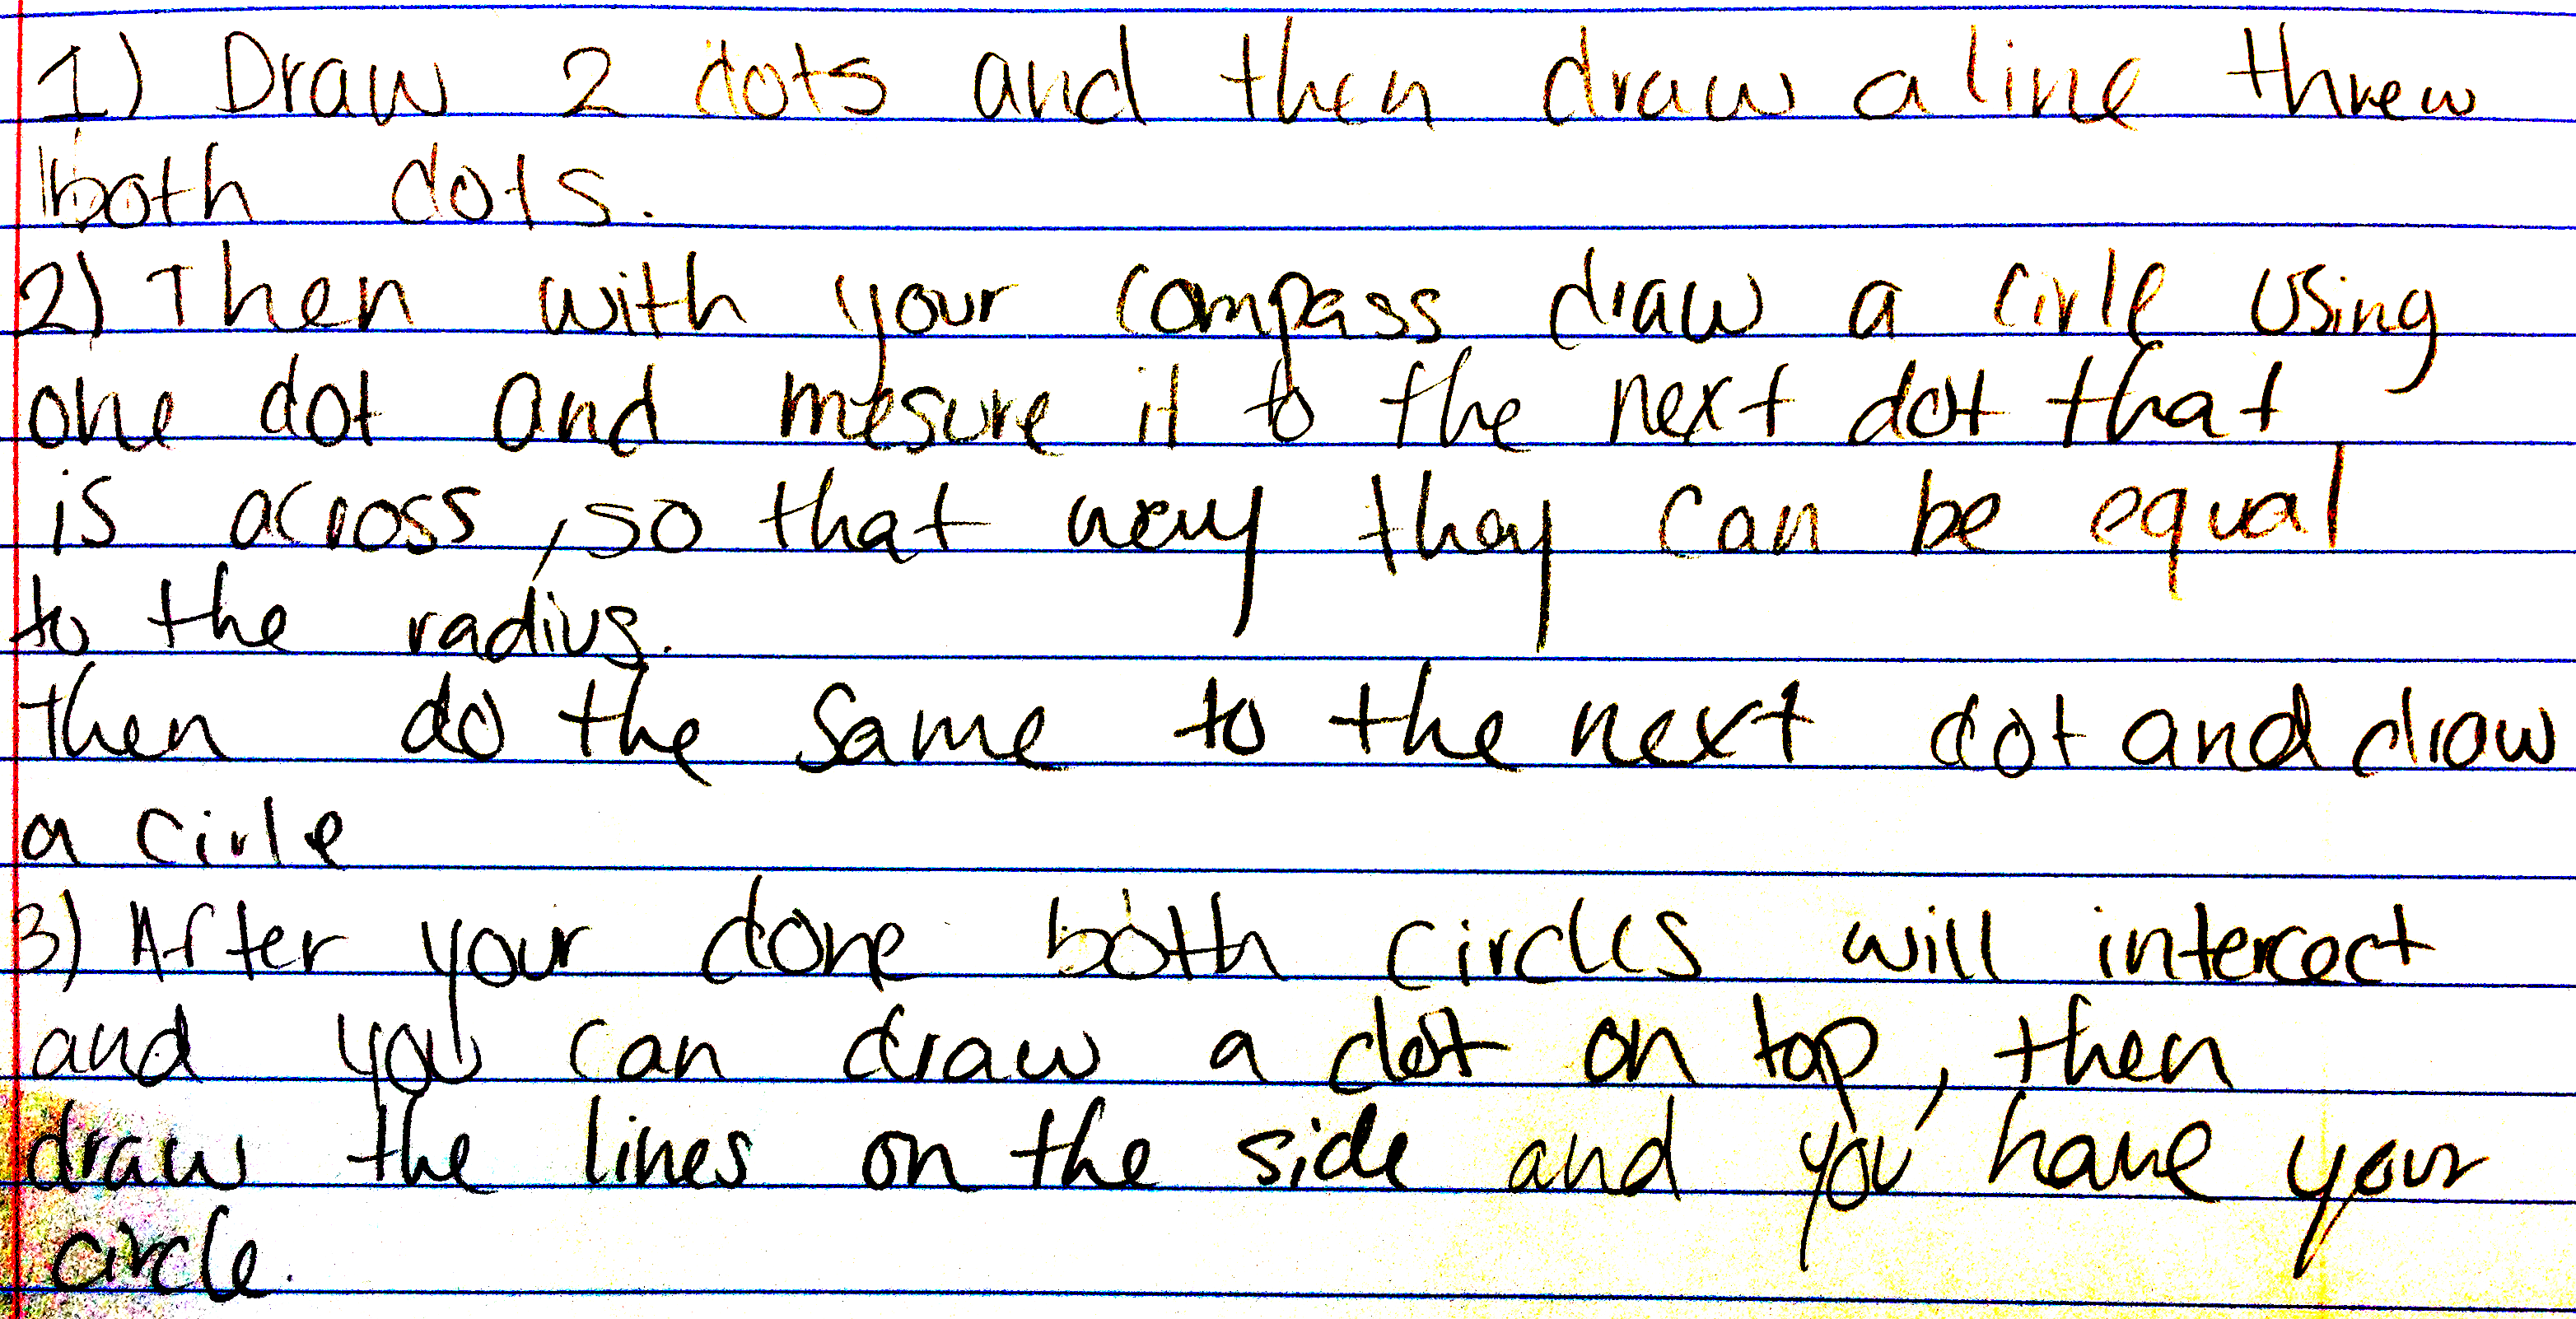 1) Draw 2 dots and then draw a line threw
both dots.
2) Then with your compass draw a cirle using
one dot and mesure it to the next dot that
is across, so that way they can be equal
to the radius.
then do the same to the next dot and draw
a cirle
3) After your done both circles will intercect
and you can draw a dot on top, then
draw the lines on the side and you have your
circle.